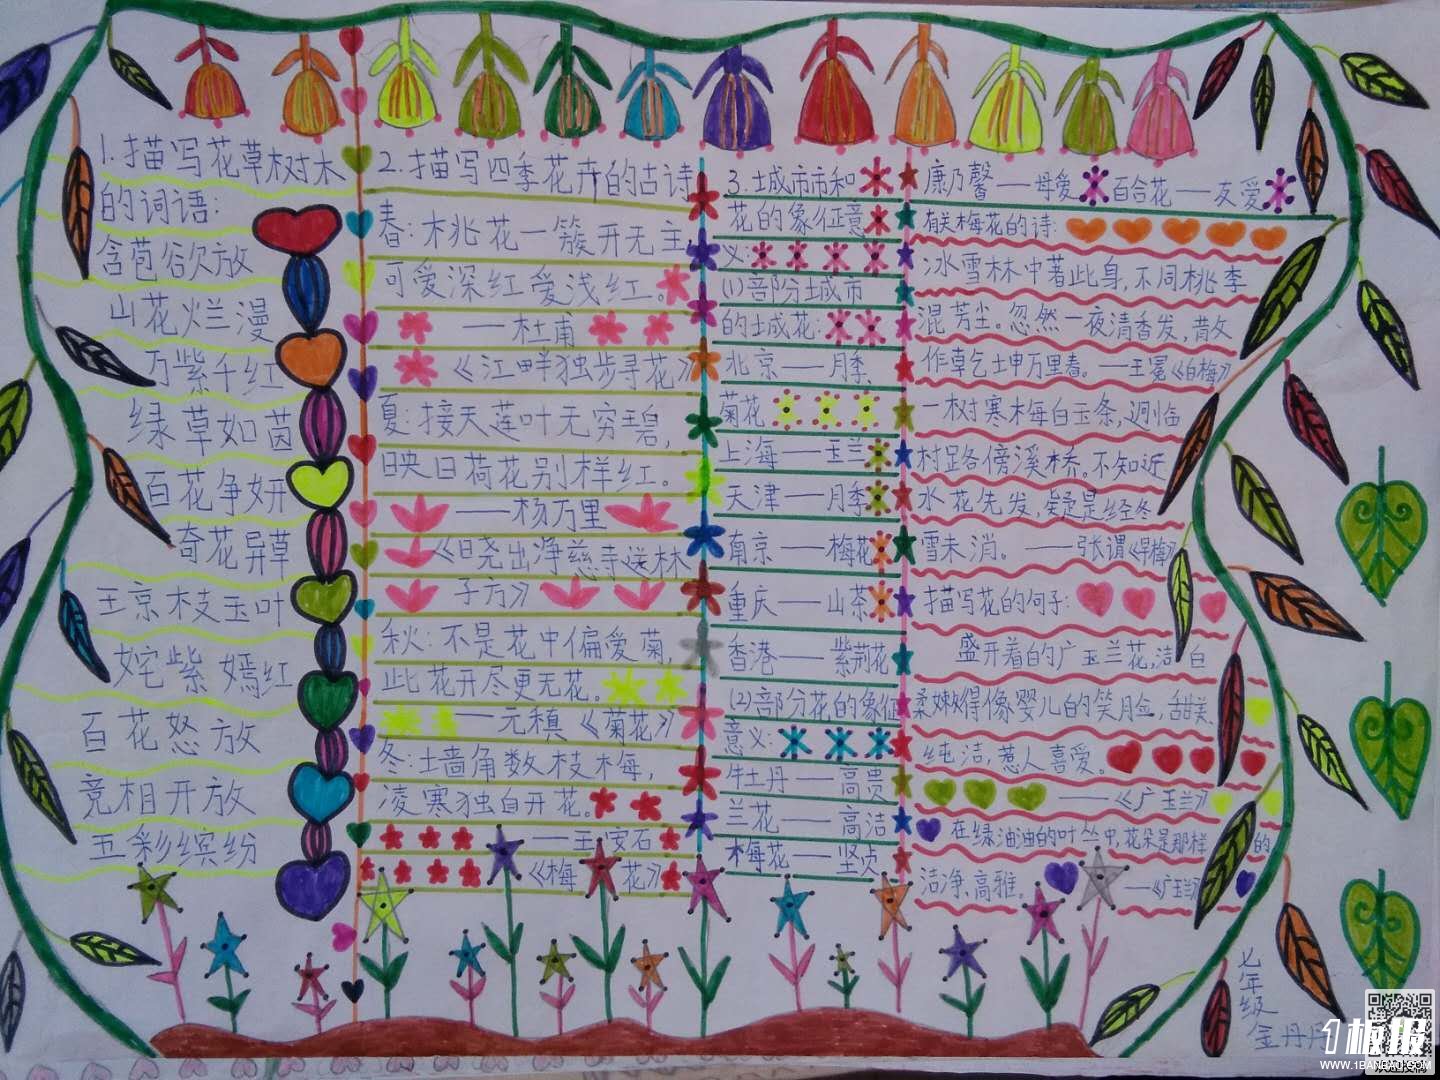 1.描写花草树木
的词语:
含苞欲放
山花烂漫
万紫千红
绿草如茵
百花争妍
奇花异草
王京枝玉叶
姹紫嫣红
百花怒放
竞相开放
五彩缤纷
2.描写四季花卉的古诗
春:桃花一簇开无主,
可爱深红爱浅红。
——杜甫
《江畔独步寻花》
夏:接天莲叶无穷碧,
映日荷花别样红。
——杨万里
《晓出净慈寺送林
子方》
秋:不是花中偏爱菊,
此花开尽更无花。
——元稹《菊花》
冬:墙角数枝梅,
凌寒独自开花。
——王安石
《梅花》
3.城市市和
花的象征意
义:
(1)部分城市
的城花:
北京——月季
菊花
上海——玉兰
天津——月季
南京——梅花
重庆——山茶
香港——紫荆花
(2)部分花的象征
意义:
牡丹——高贵
兰花——高洁
梅花——坚贞
康乃馨——母爱 百合花——友爱
有关梅花的诗:
冰雪林中著此身,不同桃李
混芳尘。忽然一夜清香发,散文
作草乞坤万里春。——王冕《白梅》
一树寒梅白玉条,迥临
村路傍溪桥。不知近
水花先发,疑是经冬
雪未消。——张谓《早梅》
描写花的句子:
盛开着的广玉兰花,洁白
柔嫩得像婴儿的笑脸,甜美、
纯洁,惹人喜爱。
——《广玉兰》
在绿油油的叶丛中,花朵是那样的
洁净、高雅。
——《广玉兰》
七年级
金丹丹
1板报
WWW.1BANBAO.COM